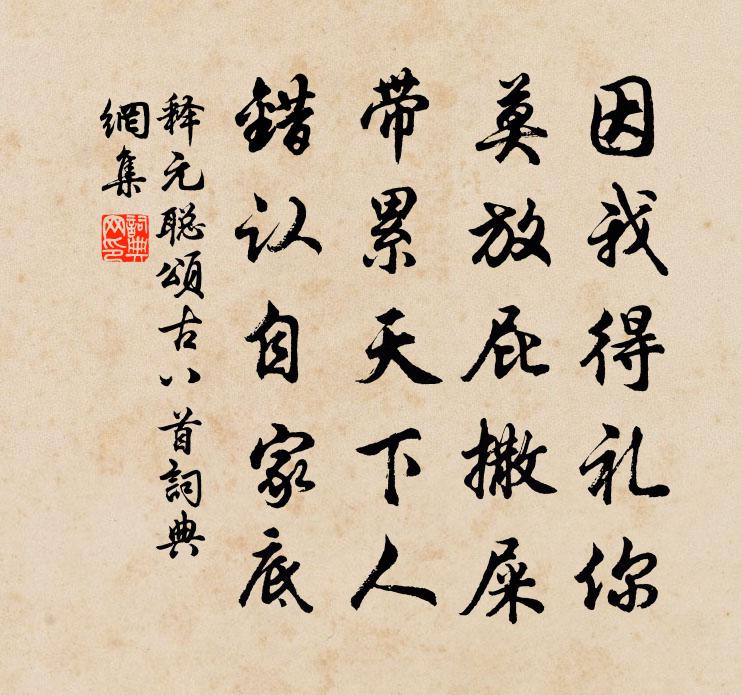 因我得礼你
莫放屁撒屎
带累天下人
错认自家底
释元聪颂古八首詞典
網集
詞典
网印